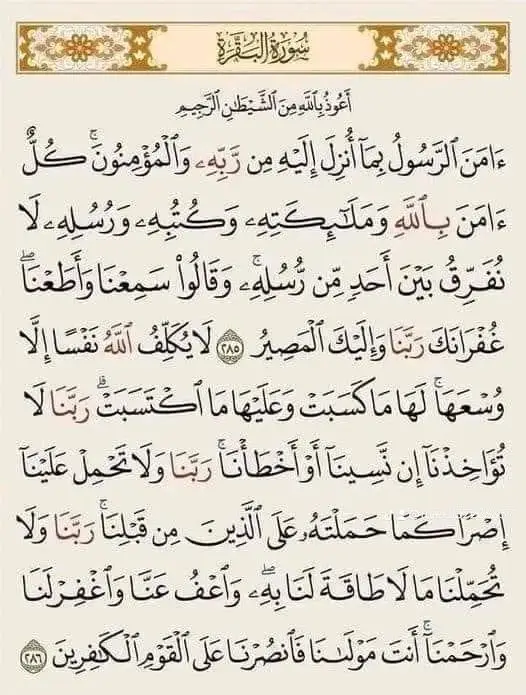 سُورَةُ البَقَرَةِ
أَعُوذُ بِٱللَّهِ مِنَ ٱلشَّيْطَٰنِ ٱلرَّجِيمِ
ءَامَنَ ٱلرَّسُولُ بِمَآ أُنزِلَ إِلَيْهِ مِن رَّبِّهِۦ وَٱلْمُؤْمِنُونَۚ كُلٌّ
ءَامَنَ بِٱللَّهِ وَمَلَٰٓئِكَتِهِۦ وَكُتُبِهِۦ وَرُسُلِهِۦ لَا
نُفَرِّقُ بَيْنَ أَحَدٍ مِّن رُّسُلِهِۦۚ وَقَالُوا۟ سَمِعْنَا وَأَطَعْنَاۖ
غُفْرَانَكَ رَبَّنَا وَإِلَيْكَ ٱلْمَصِيرُ ٢٨٥ لَا يُكَلِّفُ ٱللَّهُ نَفْسًا إِلَّا
وُسْعَهَاۚ لَهَا مَا كَسَبَتْ وَعَلَيْهَا مَا ٱكْتَسَبَتْۗ رَبَّنَا لَا
تُؤَاخِذْنَآ إِن نَّسِينَآ أَوْ أَخْطَأْنَاۚ رَبَّنَا وَلَا تَحْمِلْ عَلَيْنَآ
إِصْرًا كَمَا حَمَلْتَهُۥ عَلَى ٱلَّذِينَ مِن قَبْلِنَاۚ رَبَّنَا وَلَا
تُحَمِّلْنَا مَا لَا طَاقَةَ لَنَا بِهِۦۖ وَٱعْفُ عَنَّا وَٱغْفِرْ لَنَا
وَٱرْحَمْنَآۚ أَنتَ مَوْلَىٰنَا فَٱنصُرْنَا عَلَى ٱلْقَوْمِ ٱلْكَٰفِرِينَ ٢٨٦